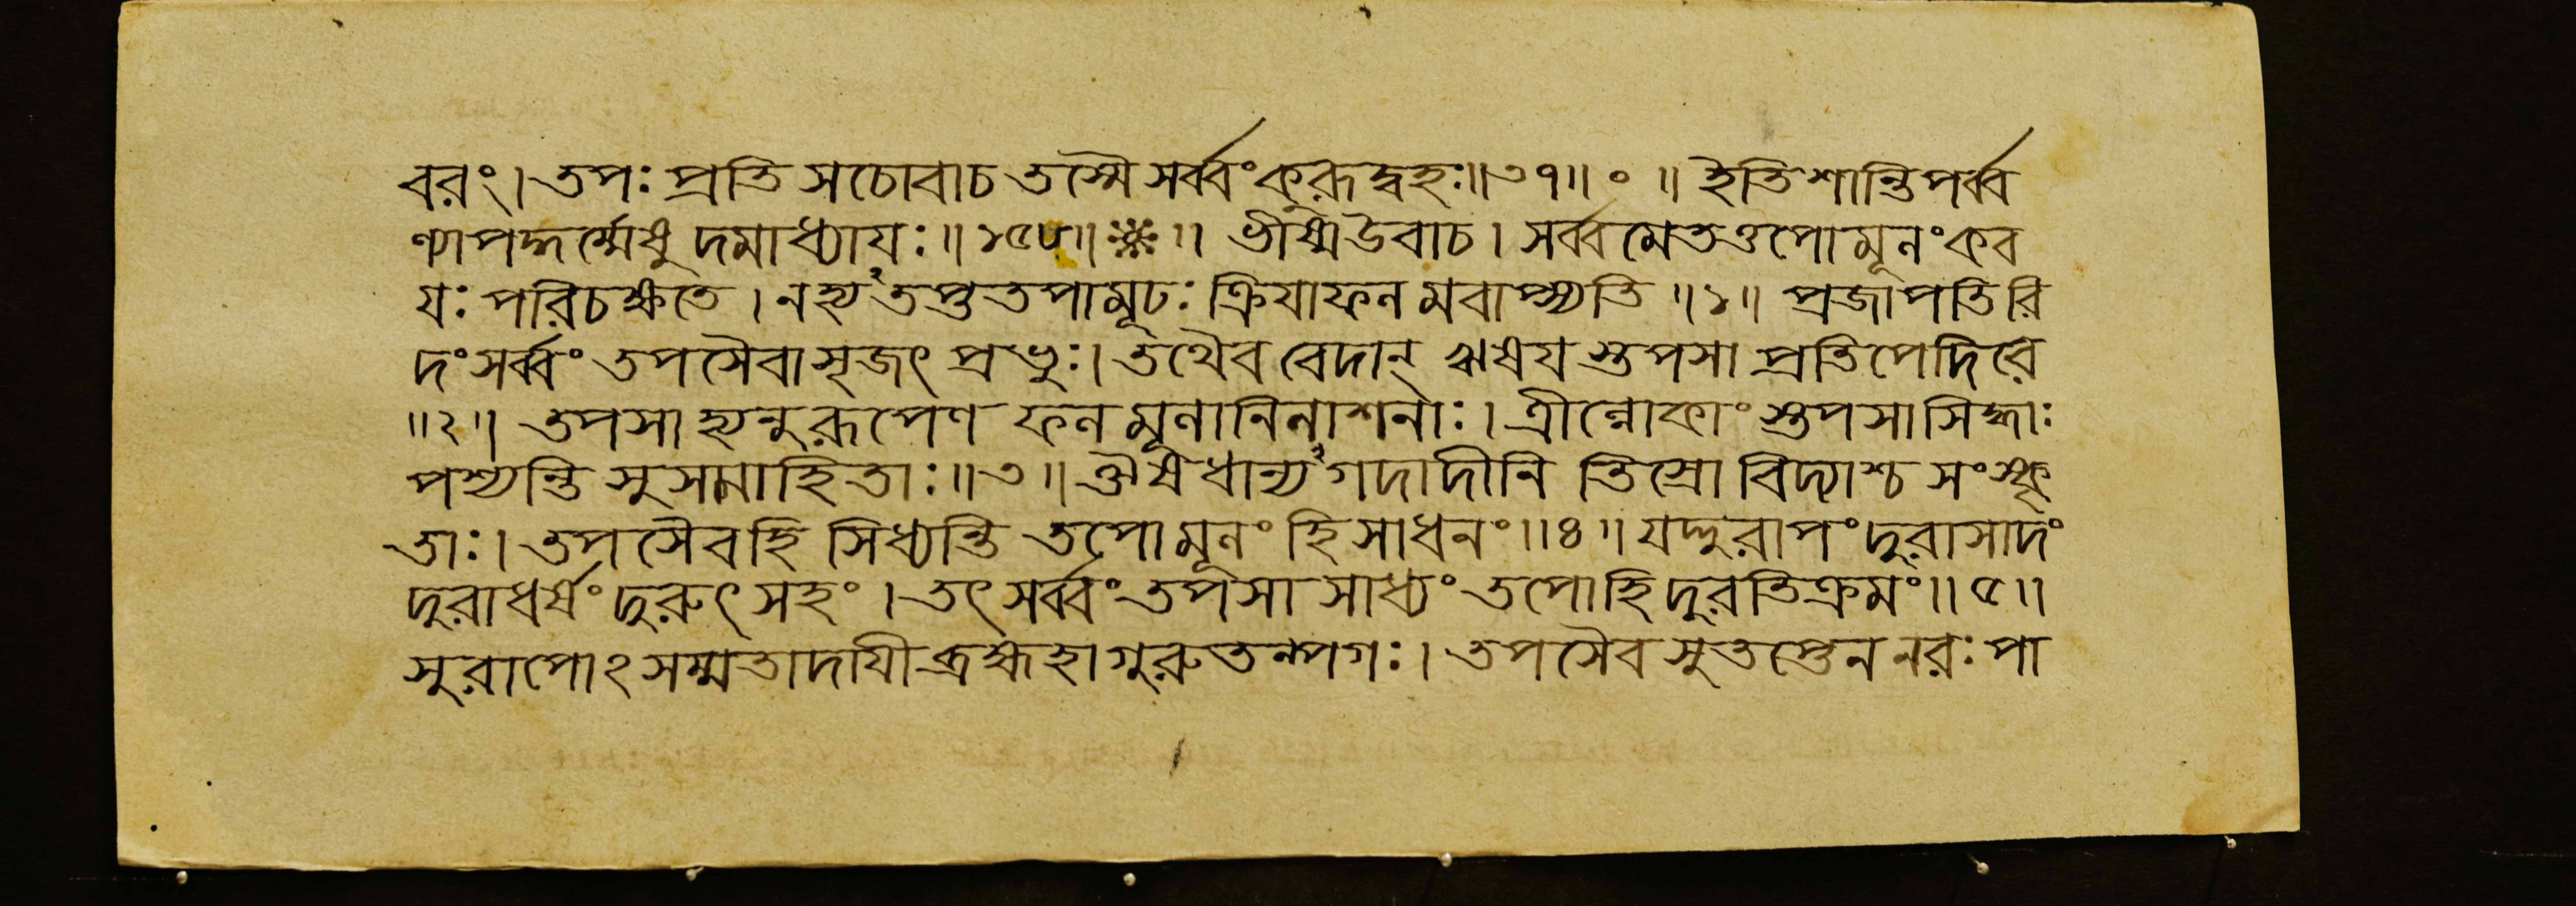 বরং। তপঃ প্রতি সচোবাচ তস্মৈ সর্ব্বং কুরূদ্বহঃ॥৩৭॥ ॰ ॥ ইতি শান্তিপর্ব্ব
ণ্যাপদ্ধর্ম্মেষু দমাধ্যায়ঃ॥১৫৮॥※॥ ভীষ্ম উবাচ। সর্ব্বমেতত্তপোমূলং কব
যঃ পরিচক্ষতে। নহ্যতপ্ততপা মূঢঃ ক্রিযাফলমবাপ্স্যতি॥১॥ প্রজাপতিরি
দং সর্ব্বং তপসৈবাসৃজৎ প্রভুঃ। তথৈব বেদান্ ঋষযস্তপসা প্রতিপেদিরে
॥২॥ তপসা হ্যনুরূপেণ ফলমূলানিলাশনাঃ। ত্রীল্লোকাংস্তপসা সিদ্ধাঃ
পশ্যন্তি সুসমাহিতাঃ॥৩॥ ঔষধান্যগদাদীনি তিস্রো বিদ্যাশ্চ সংস্কৃ
তাঃ। তপসৈবহি সিধ্যন্তি তপোমূলং হি সাধনং॥৪॥ যদ্দুরাপং দুরাসাদং
দুরাধর্ষং দুরুৎসহং। তৎ সর্ব্বং তপসা সাধ্যং তপোহি দুরতিক্রমং॥৫॥
সুরাপোঽসম্মতাদাযী ভ্রূণহা গুরুতল্পগঃ। তপসৈব সুতপ্তেন নরঃ পা